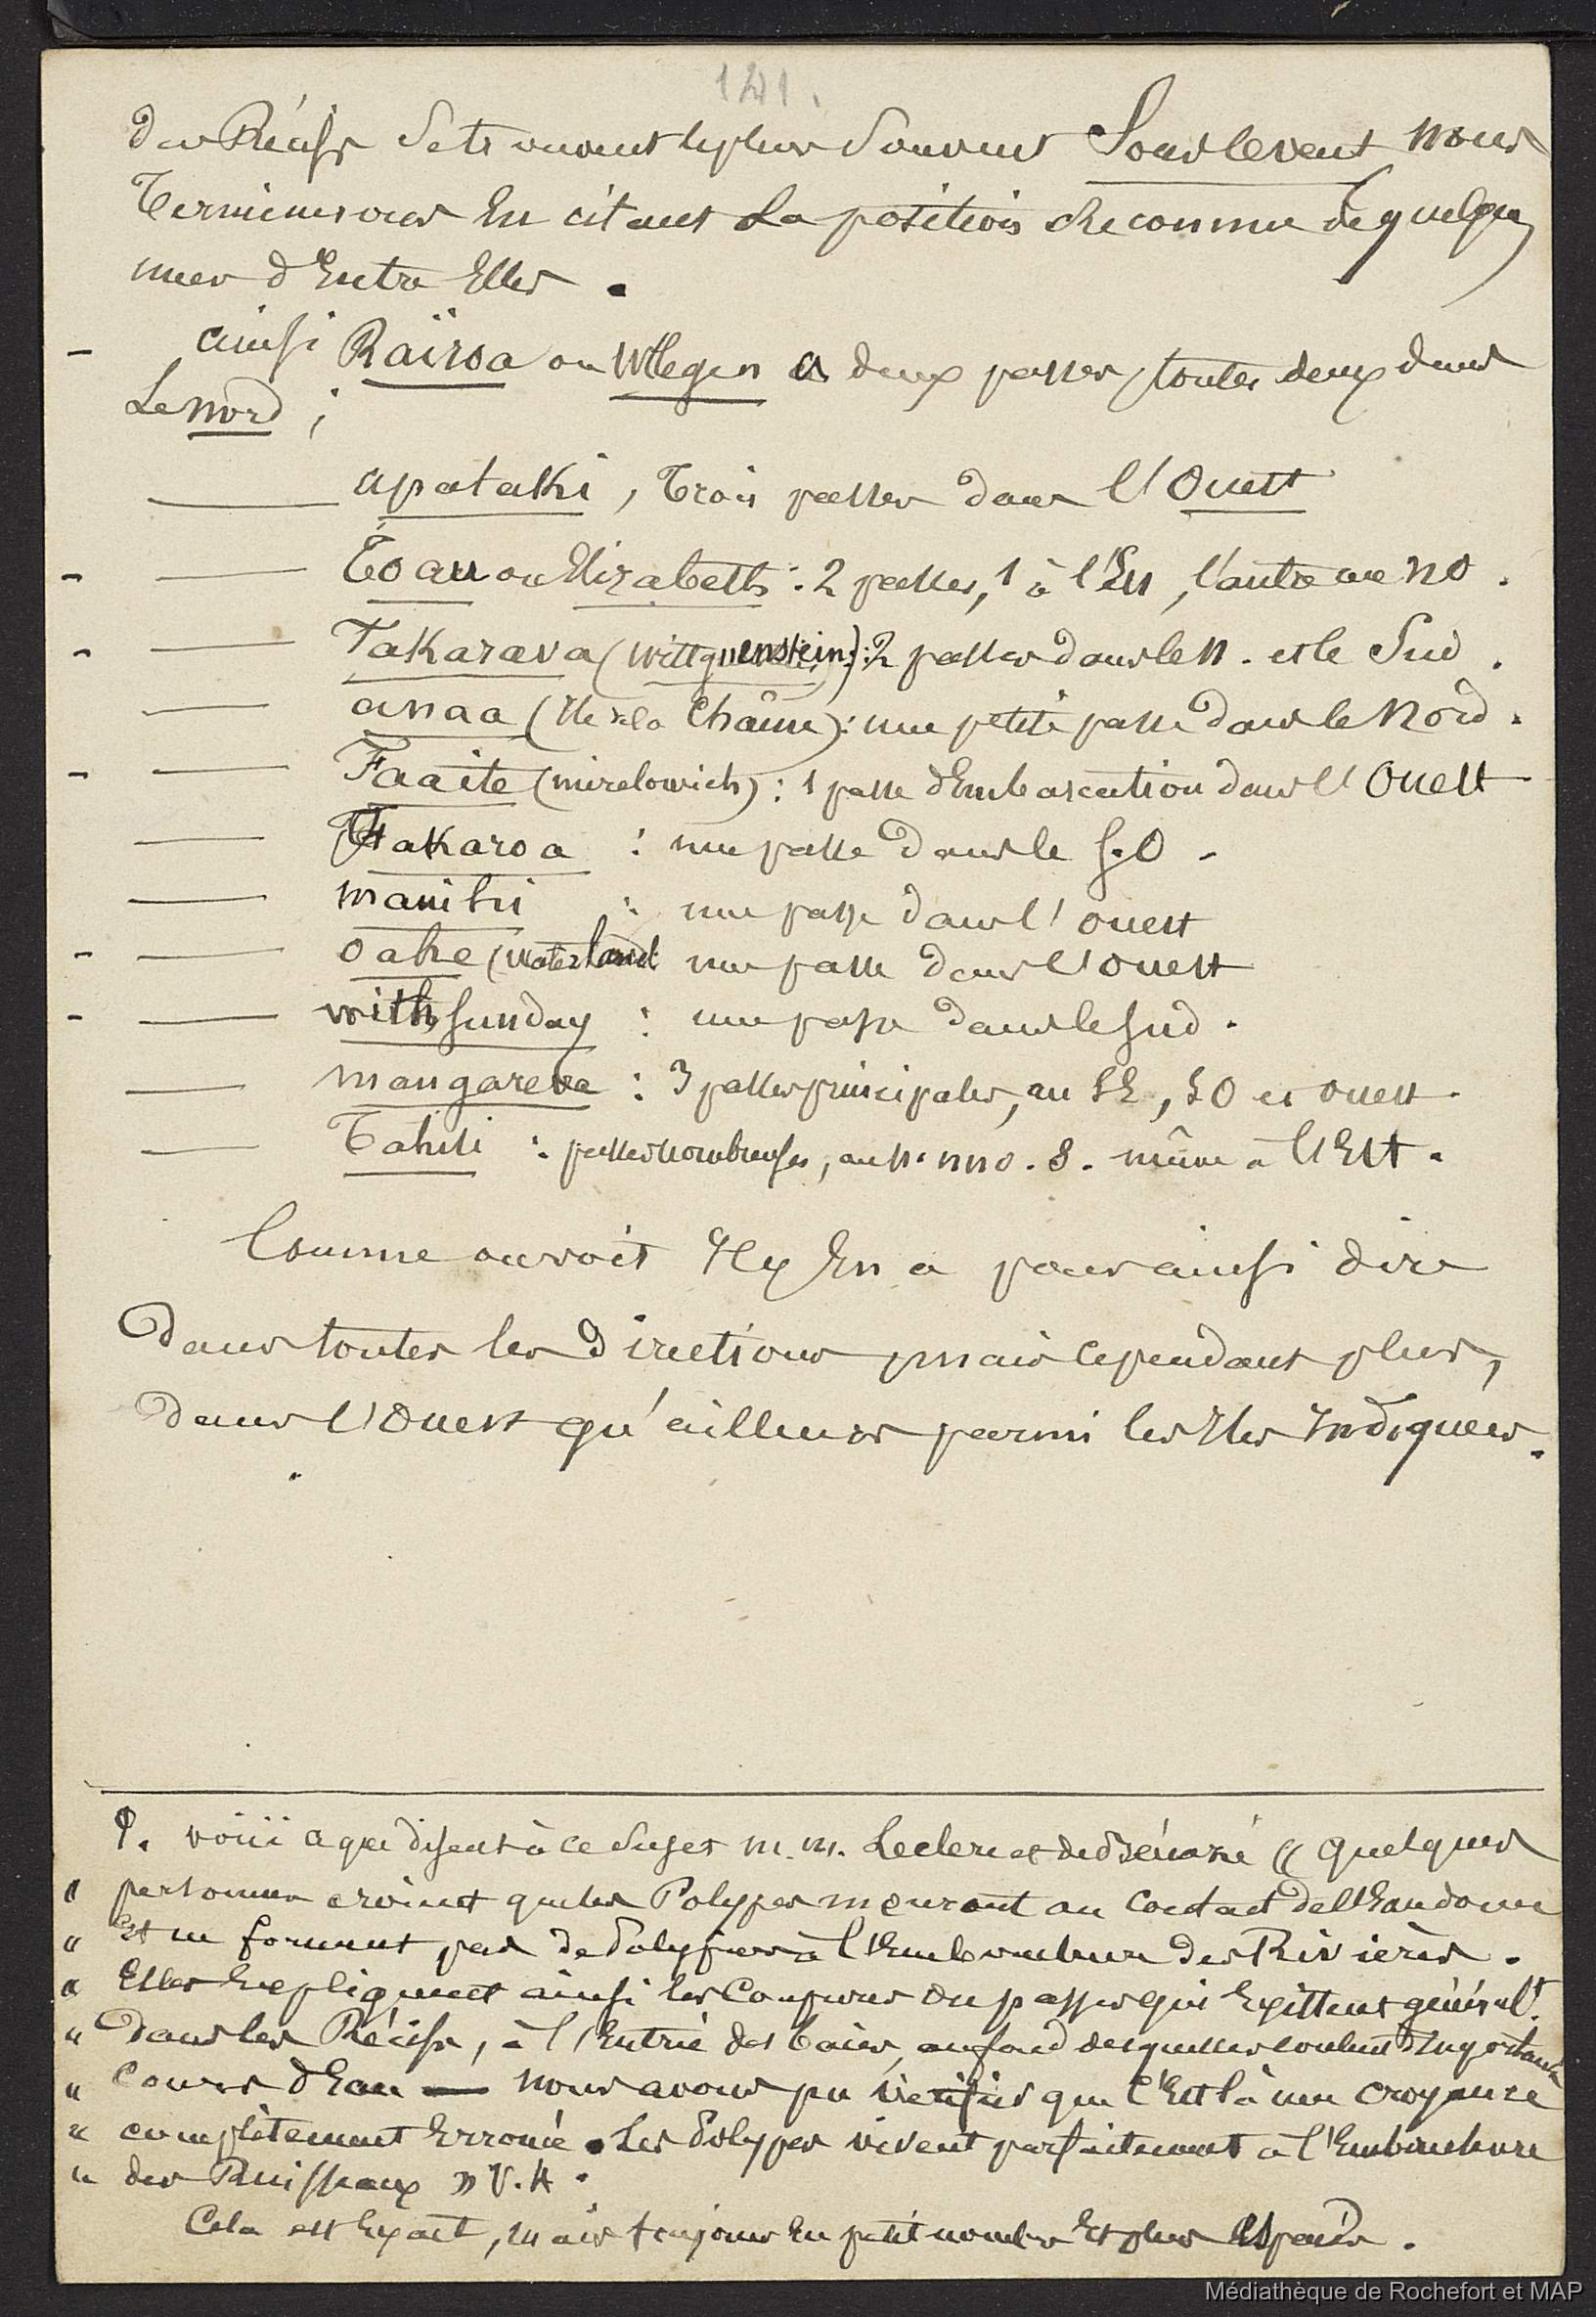 141.
des Récifs se trouvent le plus souvent Sous le vent nous
Terminerons En citant La position reconnue de quelques
unes d'Entre Elles.
- ainsi Raïroa ou Wlegen a deux passes, toutes deux dans
Le nord ;
apataki, Trois passes dans l'Ouest
- Toau ou Elizabeth : 2 passes, 1 à l'Est, l'autre au NO.
- Takarava (Wittgenstein) : 2 passes dans le N. et le Sud.
anaa (Ile de la Chaîne) : une petite passe dans le Nord.
- Faaite (mirelowich) : 1 passe d'Embarcation dans l'Ouest
Takaroa : une passe dans le S.O -
manihi : une passe dans l'ouest
- oahe (Waterland une passe dans l'ouest
- with sunday : une passe dans le sud.
mangareva : 3 passes principales, au SE, SO et ouest.
Tahiti : passes nombreuses, au N. NNO. S. même à l'Est.
Comme on voit Il y En a pour ainsi dire
Dans toutes les Directions mais cependant plus,
dans l'Ouest qu'ailleurs parmi les Iles Indiquées.
1. voici ce que disent à ce sujet M.M. Leclerc et de Bénazé « Quelques
" personnes croient que les Polypes meurent au contact de l'Eau douce
" Et ne forment pas de Polypiers à l'Embouchure des Rivières.
" Elles Expliquent ainsi les Coupures ou passes qui Existent général.t
" Dans les Récifs, à l'Entrée des baies, au fond desquelles coulent d'Importants
" Cours d'Eau — nous avons pu vérifier que C'Est là une croyance
" complètement Erronée. Les Polypes vivent parfaitement à l'Embouchure
" des Ruisseaux » V.H.
Cela est Exact, mais toujours En petit nombre Et plus Espacés.